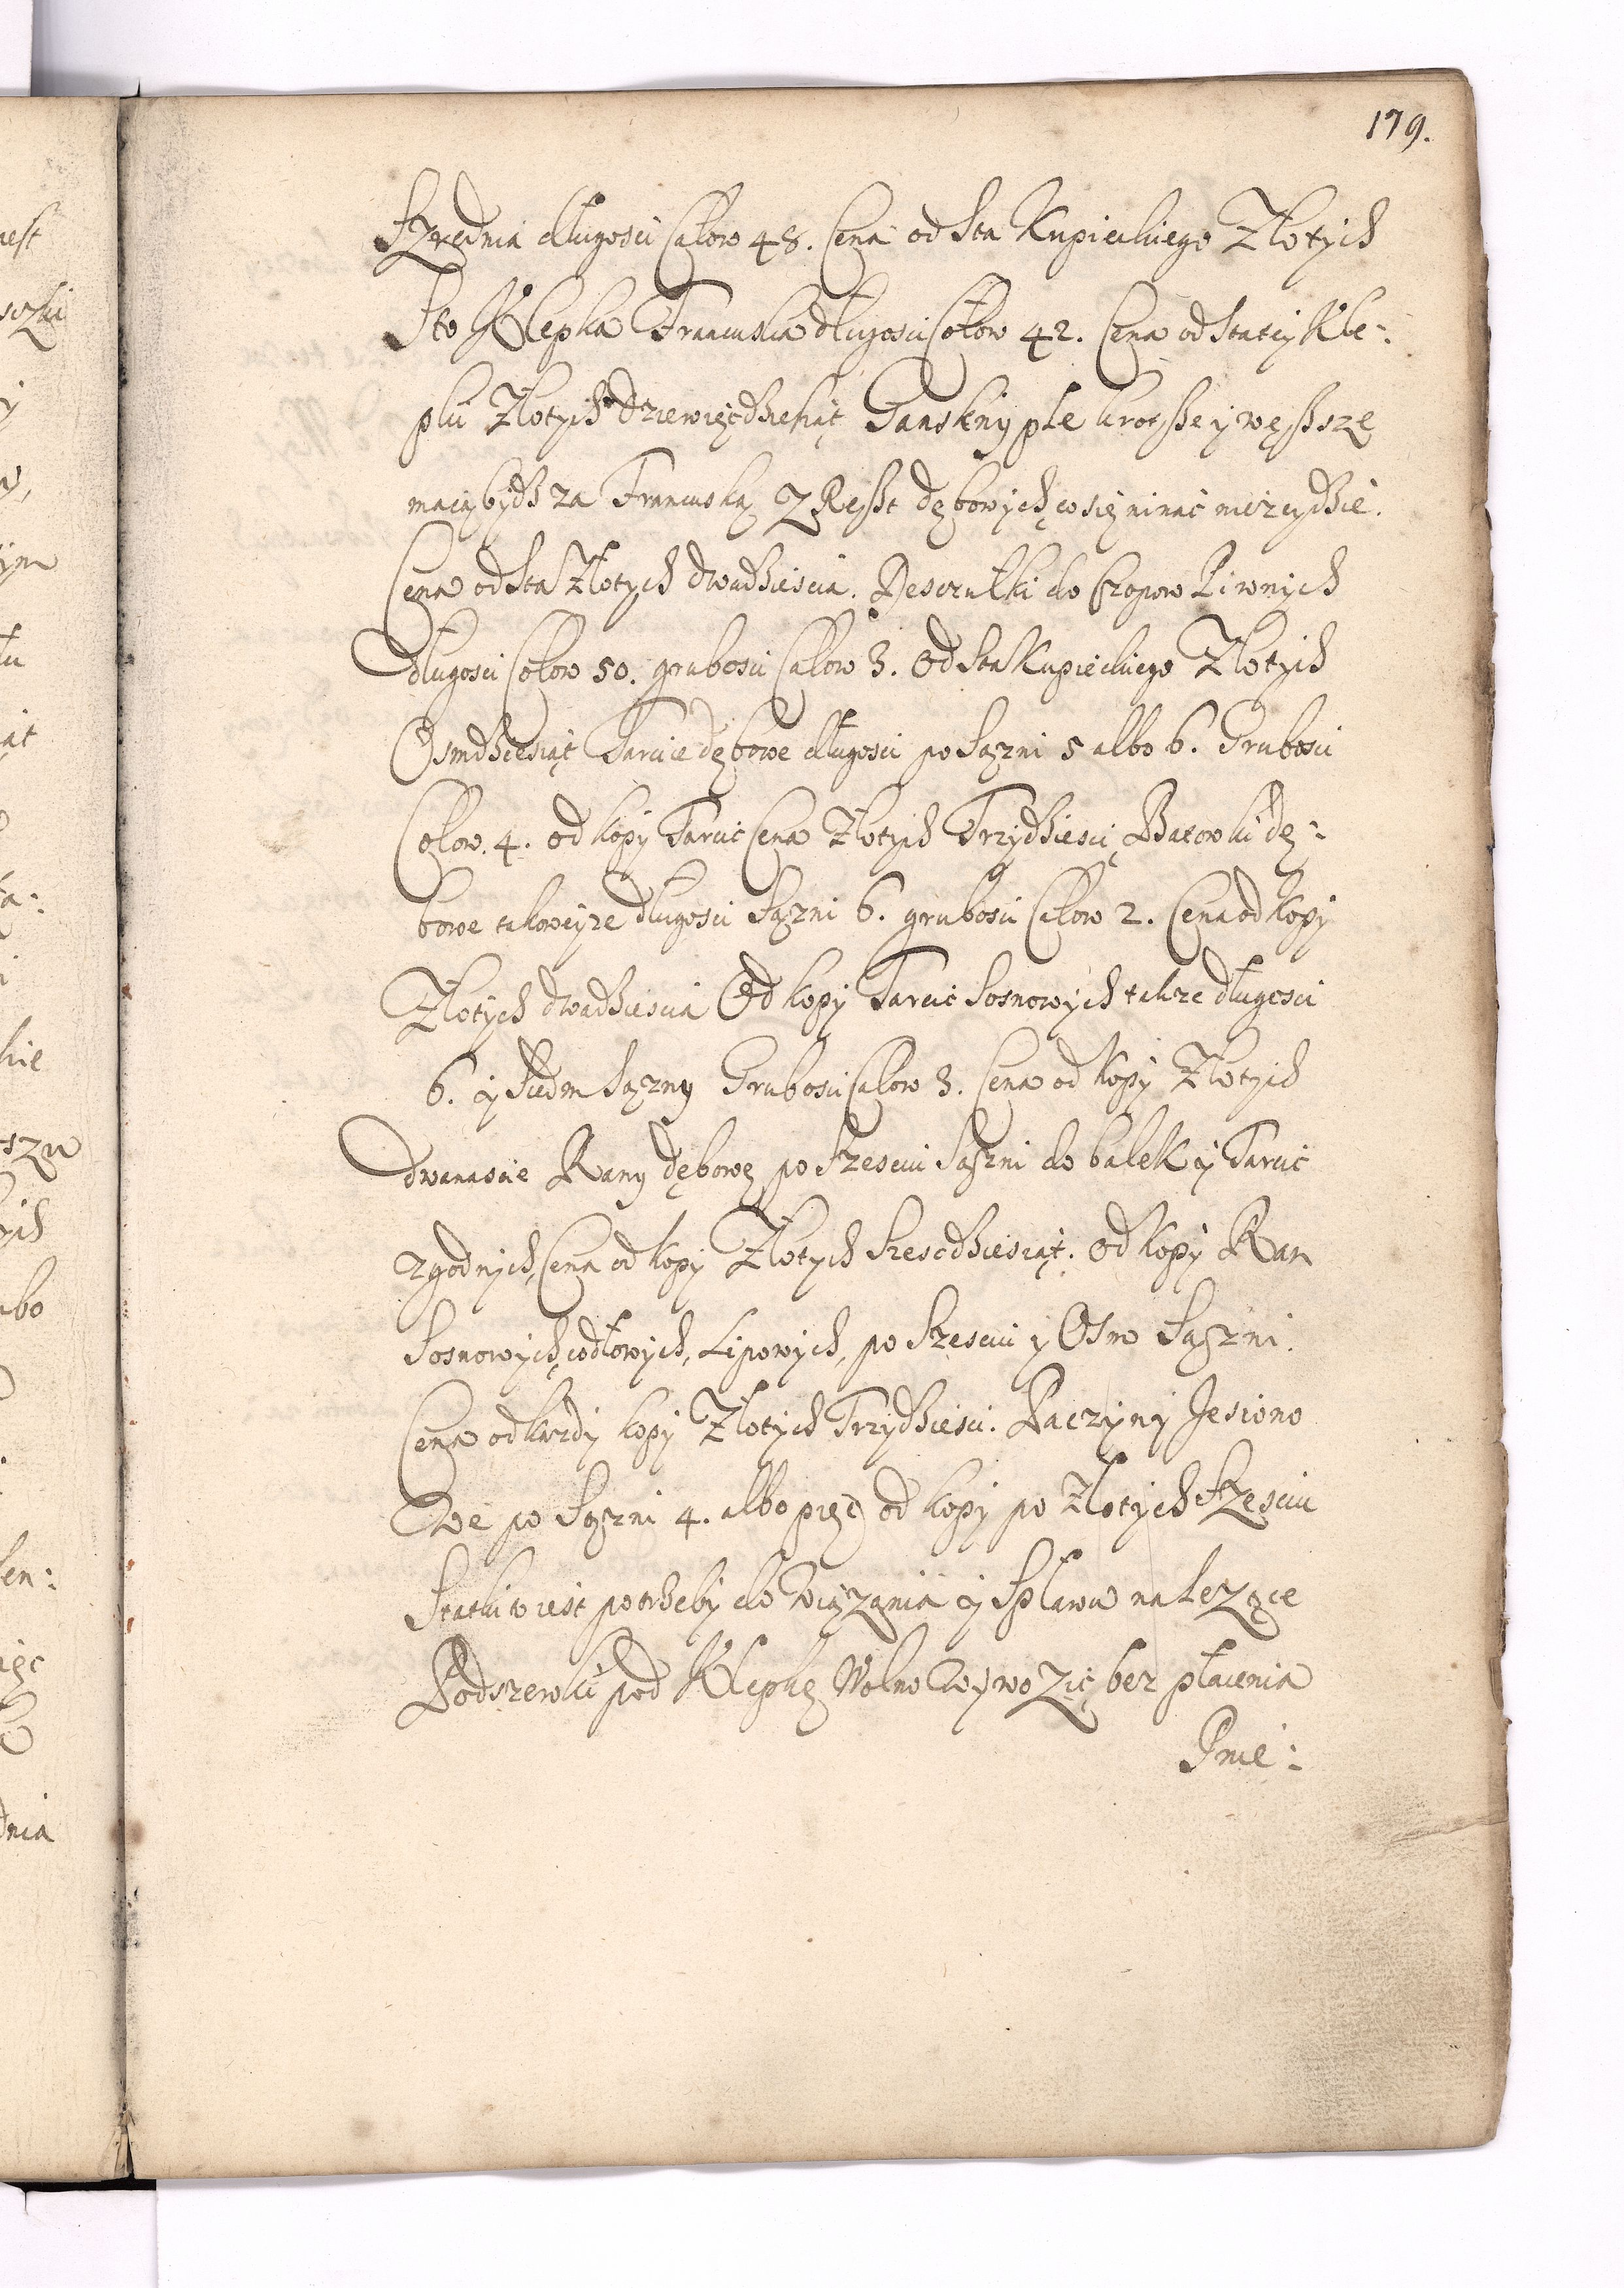 179.
Szrednia długosci Całow 48. Cena od Sta Kupieckiego Złotych
Sto Klepka Francuska długosci Całow 42. Cena od Sta tey Kle:
pki Złotych dziewięcdzieśiąt krotsze y węssze
maią bydz za Francuską Z Reszt dębowych, co się ninac niezeydzie.
Cena od Sta Złotych dwadziescia. Desczułki do Czopow Piwnych
długosci Całow 50. grubosci Całow 3. Od Sta Kupieckiego Złotych
Osmdziesiąt Tarcice dębowe długosci po Sązni 5 albo 6. Grubosci
Całow. 4. od kopy Tarcic Cena Złotych Trzydziesci, Barowki dę:
bowe takoweyze długosci Sązni 6. grubosci Całow 2. Cena od kopy
Złotych dwadziescia Od kopy Tarcic Sosnowych takze długosci
6. y Siedm Sązny Grubosci Całow 3. Cena od Kopy Złotych
dwanascie Ramy dębowę po Szesciu Sązni do balek y Tarcic
zgodnych, Cena od kopy Złotych Szescdziesiąt. Od kopy Ram
Sosnowych, iodłowych, Lipowych, po Szesciu y Osm Sązni.
Cena od kazdy kopy Złotych Trzydziesci. Paczyny Jesiono
we po Sązni 4. albo pięc, od kopy po Złotych Szesciu
Statki to iest potrzeby do wiązania y Spławu nalezące
Podszewki pod Klepkę Wolno wywozic bez płacenia
Pme: